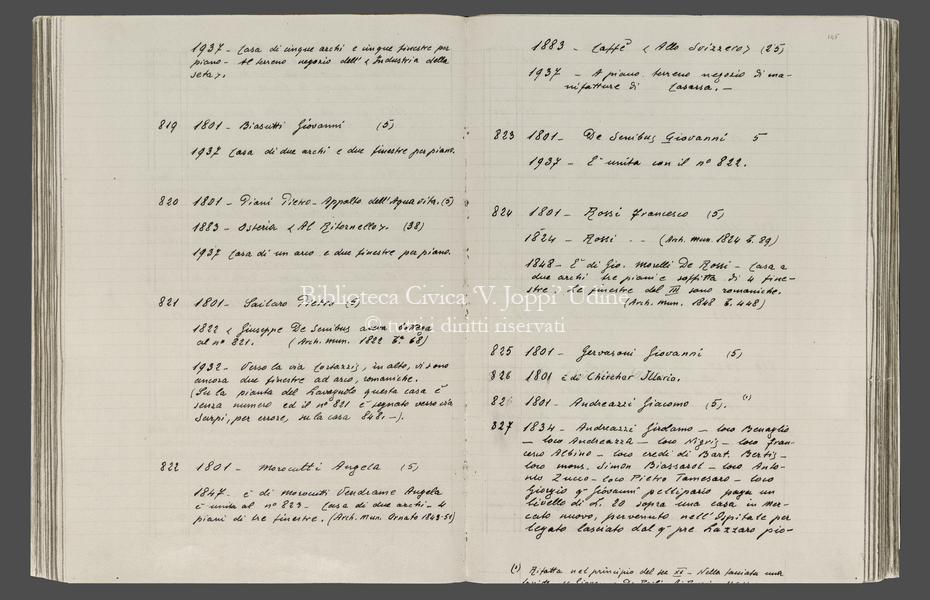 1937 - Casa di cinque archi e cinque finestre per
piano - Al terreno negozio dell'«Industria della
seta».
819 1801 - Biasutti Giovanni (5)
1937 Casa di due archi e due finestre per piano.
820 1801 - Piani Pietro - Appalto dell'Aqua vita. (5)
1883 - Osteria «Al Ritornello». (38)
1937 Casa di un arco e due finestre per piano.
821 1801 - Sailaro (5)
1822 « Giuseppe De Senibus
al n° 821. (Arch. mun. 1822 68)
1932 - Verso la via Cortazzis, in alto, vi sono
ancora due finestre ad arco, romaniche.
(Su la pianta del Lavagnolo questa casa è
senza numero ed il n° 821 è segnato verso via
Sarpi, per errore, su la casa 848. -).
822 1801 - Morocutti Angela (5)
1847 - è di Morocutti Vendrame Angela
è unita al n° 823 - Casa di due archi - 4
piani di tre finestre. (Arch. Mun. Ornato 1843-51)
145
1883 - Caffè «Allo Svizzero» (25)
1937 - A piano terreno negozio di ma-
nifatture di Casarsa. -
823 1801 - De Senibus Giovanni 5
1937 - È unita con il n° 822.
824 1801 - Rossi Francesco (5)
1824 - Rossi - - (Arch. mun. 1824 89)
1848 - È di Gio. Morelli De Rossi - Casa a
due archi tre piani e soffitta di 4 fine-
stre: le finestre del III sono romaniche.
(Arch. mun. 1848 448)
Biblioteca Civica 'V. Joppi' Udine
© tutti i diritti riservati
825 1801 - Gervasoni Giovanni (5)
826 1801 è di Chircher Ilario.
1801 - Andreazzi Giacomo (5). (1)
827 1834 - Andreazzi Girolamo - loco Benaglio
- loco Andreazza - loco Nigris - loco Fran-
cesco Albino - loco eredi di Bart. Bertis -
loco mons. Simon Biassarol - loco Anto-
nio Zucco - loco Pietro Tamesaro - loco
Giorgio q Giovanni pellipario paga un
livello di L. 20 sopra una casa in Mer-
cato nuovo, pervenuto nell'Ospitale per
legato lasciato dal q pre Lazzaro pio-
(1) Rifatta nel principio del sec XX - Nella facciata una